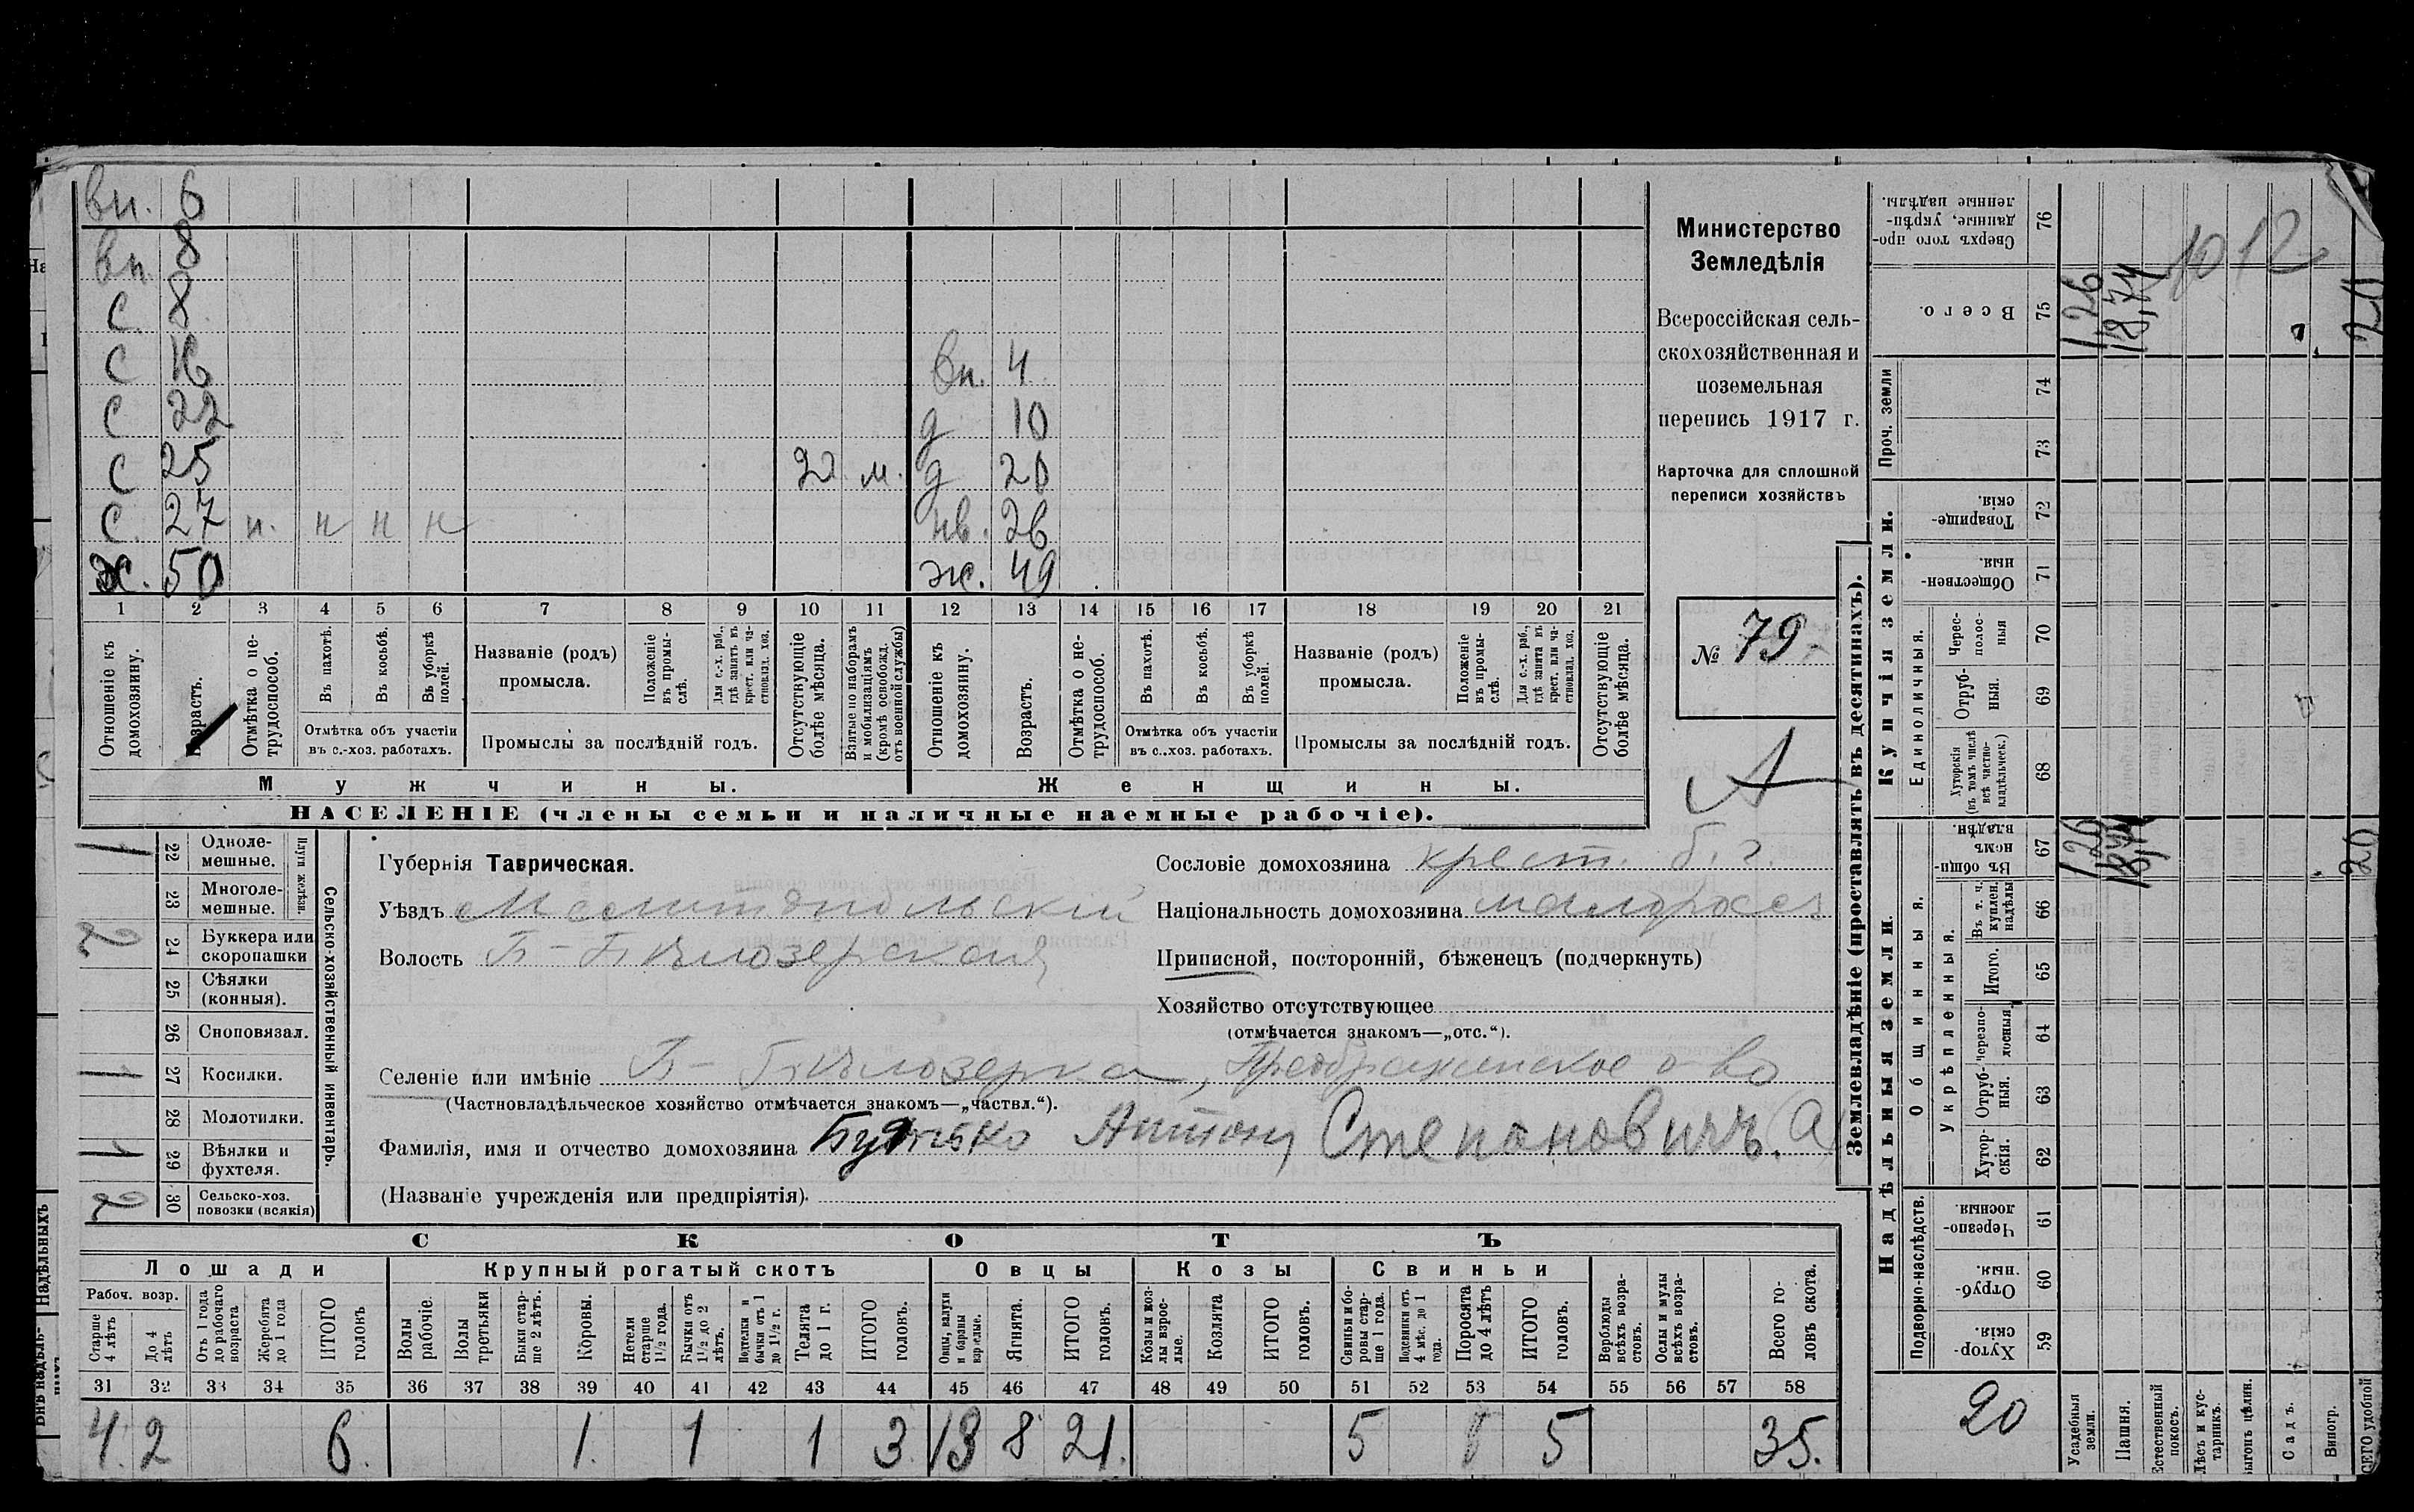 вн. 6
вн 8
с 8
с 16
с 22
с 25 2 м.
с. 27 н. н н н
х. 50
вн. 4
д 10
д 20
нв. 26
ж. 49
1 2 3 4 5 6 7 8 9 10 11 12 13 14 15 16 17 18 19 20 21
Отношеніе къ домохозяину.
Возрастъ.
Отмѣтка о нетрудоспособ.
Въ пахотѣ.
Въ косьбѣ.
Въ уборкѣ полей.
Отмѣтка объ участіи въ с.-хоз. работахъ.
Названіе (родъ) промысла.
Положеніе въ промыслѣ.
Для с.-х. раб., гдѣ занятъ въ крест. или частновлад. хоз.
Промыслы за послѣдній годъ.
Отсутствующіе болѣе мѣсяца.
Взятые по наборамъ и мобилизаціямъ (кромѣ освобожд. отъ военной службы)
Отношеніе къ домохозяину.
Возрастъ.
Отмѣтка о нетрудоспособ.
Въ пахотѣ.
Въ косьбѣ.
Въ уборкѣ полей.
Отмѣтка объ участіи въ с..хоз. работахъ.
Названіе (родъ) промысла.
Положеніе въ промыслѣ.
Для с.-х. раб., гдѣ занята въ крест. или частновлад. хоз.
Промыслы за послѣдній годъ.
Отсутствующіе болѣе мѣсяца.
Мужчины.
Женщины.
НАСЕЛЕНІЕ (члены семьи и наличные наемные рабочіе).
Министерство
Земледѣлія
Всероссійская сель-
скохозяйственная и
поземельная
перепись 1917 г.
Карточка для сплошной
переписи хозяйствъ
№ 79
А
Плуги желѣзн.
1 22 Одноле-мешные.
23 Многоле-мешные.
2 24 Буккера или скоропашки
25 Сѣялки (конныя).
26 Сноповязал.
1 27 Косилки.
28 Молотилки.
1 29 Вѣялки и фухтеля.
2 30 Сельско-хоз. повозки (всякія)
Сельско-хозяйственный инвентарь.
Губернія Таврическая.
Уѣздъ Мелитопольскій
Волость Б-Бѣлозерская
Сословіе домохозяина крест. б. г.
Національность домохозяина малоросс
Приписной, посторонній, бѣженецъ (подчеркнуть)
Хозяйство отсутствующее
(отмѣчается знакомъ—„отс.“).
Селеніе или имѣніе Б-Бѣлозерка, Преображенское о-во
(Частновладѣльческое хозяйство отмѣчается знакомъ—„частвл.“).
Фамилія, имя и отчество домохозяина Антонъ Степановичъ.
(Названіе учрежденія или предпріятія).
СКОТЪ
Лошади
Крупный рогатый скотъ
Овцы
Козы
Свиньи
Рабоч. возр.
Старше 4 лѣтъ
До 4 лѣтъ
Отъ 1 года до рабочаго возраста
Жеребята до 1 года
ИТОГО головъ
Волы рабочіе.
Волы третьяки
Быки старше 2 лѣтъ.
Коровы.
Нетели старше 1½ года.
Бычки отъ 1½ до 2 лѣтъ.
Подтелки и бычки отъ 1 до 1½ г.
Телята до 1 г.
ИТОГО головъ.
Овцы, валухи и бараны взрослые.
Ягнята.
ИТОГО головъ.
Козы и козлы взрослые.
Козлята
ИТОГО головъ.
Свиньи и боровы старше 1 года.
Подсвинки отъ 4 мѣс. до 1 года.
Поросята до 4 лѣтъ
ИТОГО головъ.
Верблюды всѣхъ возрастовъ.
Ослы и мулы всѣхъ возрастовъ.
Всего головъ скота.
31 32 33 34 35 36 37 38 39 40 41 42 43 44 45 46 47 48 49 50 51 52 53 54 55 56 57 58
4. 2 6. 1. 1 1 3. 13 8 21. 5 5 35.
Землевладѣніе (проставлять въ десятинахъ).
Купчія земли.
Надѣльныя земли.
Проч. земли
Сверхъ того проданные, укрѣпленные надѣлы. 76
Всего. 75 1,26 18,74 20
10 12
74
73
Товарищескія. 72
Общественныя. 71
Единоличныя.
Чересполосныя 70
Отрубныя. 69
Хуторскія (въ томъ числѣ всѣ частновладѣльческ.) 68
Общинныя.
Въ общинномъ владѣн. 67 1,26 18,74 20
Въ т. ч. куплен. надѣлы 66
Укрѣпленныя.
Итого. 65
Черезполосныя 64
Отрубныя. 63
Хуторскія. 62
Подворно-наслѣдств.
Черезполосныя. 61
Отрубныя. 60
Хуторскія. 59
20
Усадебныя земли.
Пашня.
Естественный покосъ.
Лѣсъ и кустарникъ.
Выгонъ цѣлин.
Садъ.
Виногр.
ВСЕГО удобной
Надѣльныхъ